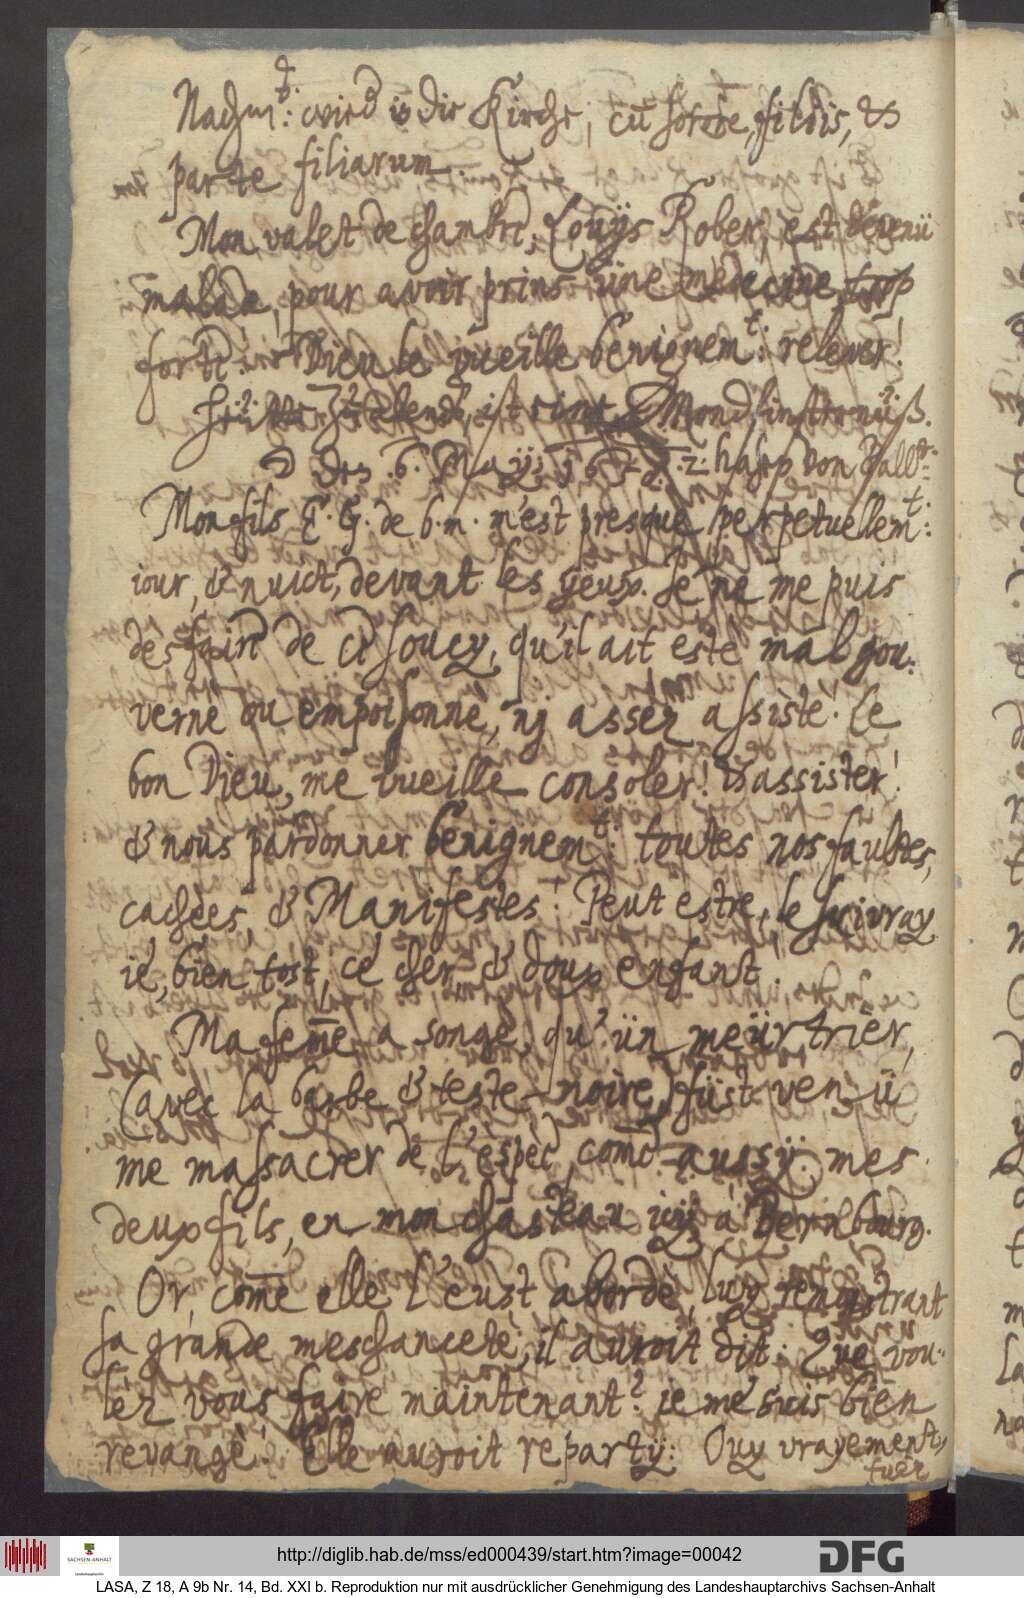 Nachmt: wied in die Kirche, cum sorore, filiis, &
parte filiarum.
Mon valet de chambre, Louys Rober, est devenü
malade, pour avoir prins üne medecine, trop
forte. Dieu le vueille benignemt: relever!
ist eine Mondfinsternüß.
den 6. May: 2 hasen von Ballenstedt
Mon fils E. G. de b. m. m'est presque perpetuellemt:
iour, & nuict, devant les yeux. Je ne me puis
desfaire de ce soucy, qu'il ait esté mal gou-
verné ou empoisonnè, nj assez assistè. Le
bon Dieu, me vueille consoler! & assister!
& nous pardonner benignemt: toutes nos faultes,
cachèes, & Manifestes! Peut estre, le suivray
ie, bien tost, ce cher, & doux enfant!
Ma femme a songè, qu'ün meürtrier,
(avec la barbe & teste noire) füst venü
me massacrer de l'espèe comme aussy mes
deux fils, en mon chasteau icy a Bernbourg.
Or, comme elle l'eust abordè, luy remonstrant
sa grande meschancetè, il auroit dit: Que vou-
lèz vous faire maintenant? ie me suis bien
revangè! Elle auroit reparty: Ouy vrayement,
tuer
http://diglib.hab.de/mss/ed000439/start.htm?image=00042
DFG
SACHSEN-ANHALT
Landeshauptarchiv
LASA, Z 18, A 9b Nr. 14, Bd. XXI b. Reproduktion nur mit ausdrücklicher Genehmigung des Landeshauptarchivs Sachsen-Anhalt